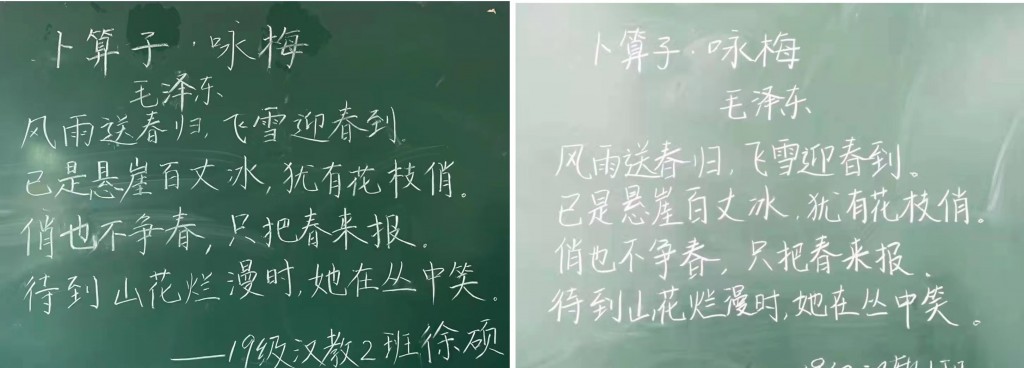 卜算子·咏梅
毛泽东
风雨送春归,飞雪迎春到。
已是悬崖百丈冰,犹有花枝俏。
俏也不争春,只把春来报。
待到山花烂漫时,她在丛中笑。
——19级汉教2班徐硕
卜算子·咏梅
毛泽东
风雨送春归,飞雪迎春到。
已是悬崖百丈冰,犹有花枝俏。
俏也不争春,只把春来报。
待到山花烂漫时,她在丛中笑。